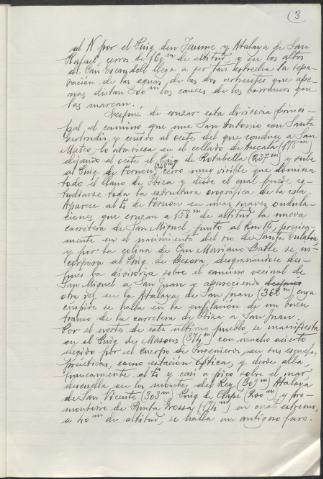 (3
al N por el Puig d'en Jaume y Atalaya de San
Rafael, cerros de 160 m de altitud, y en los altos
de Can Escandell llega a ser tan estrecha la sepa-
ración de las aguas, de las dos vertientes que ape-
nas distan 500 m los cauces de los barrancos que
las marcan.
Después de cruzar esta divisoria princi-
pal al camino que une San Antonio con Santa
Gertrudis, y cerca al oeste del que conduce a San
Mateo, lo atraviesa en el collado de
dejando al oeste el Puig de Rotabella y sube
al Puig de Fornou, cerro muy visible que domina
todo el llano de Ibiza y desde el cual puede es-
tudiarse toda la estructura orográfica de la isla.
Aparece al E de Fornou en unas suaves ondula-
ciones que cruzan a 150 m de altitud la nueva
carretera de San Miguel, junto al Km 15,
mente en el nacimiento del río de Santa Eulalia
y por la colina de Can Mariano Batle, se
al Puig de Besora, después
la divisoria sobre el camino vecinal de
San Miguel a San Juan y apareciendo
otra vez en la Atalaya de San Juan (362 m) cuya
cúspide se halla en la
tramo de la carretera de Ibiza a San Juan.
Por el norte de este último pueblo, se manifiesta
en el Puig de Massons (314 m) con mucho acierto
elegido por el Cuerpo de Ingenieros para sus escuelas
prácticas, como estación óptica, y desde allá
francamente al E y casi a pico sobre el mar
descuella en los montes, del Rey (303 m) Atalaya
de San Vicente (303 m) Puig de Clapé (200 m) y pro-
montorio de Punta Grossa (174 m) en cuyo extremo,
a 40 m de altitud, se halla un antiguo faro.